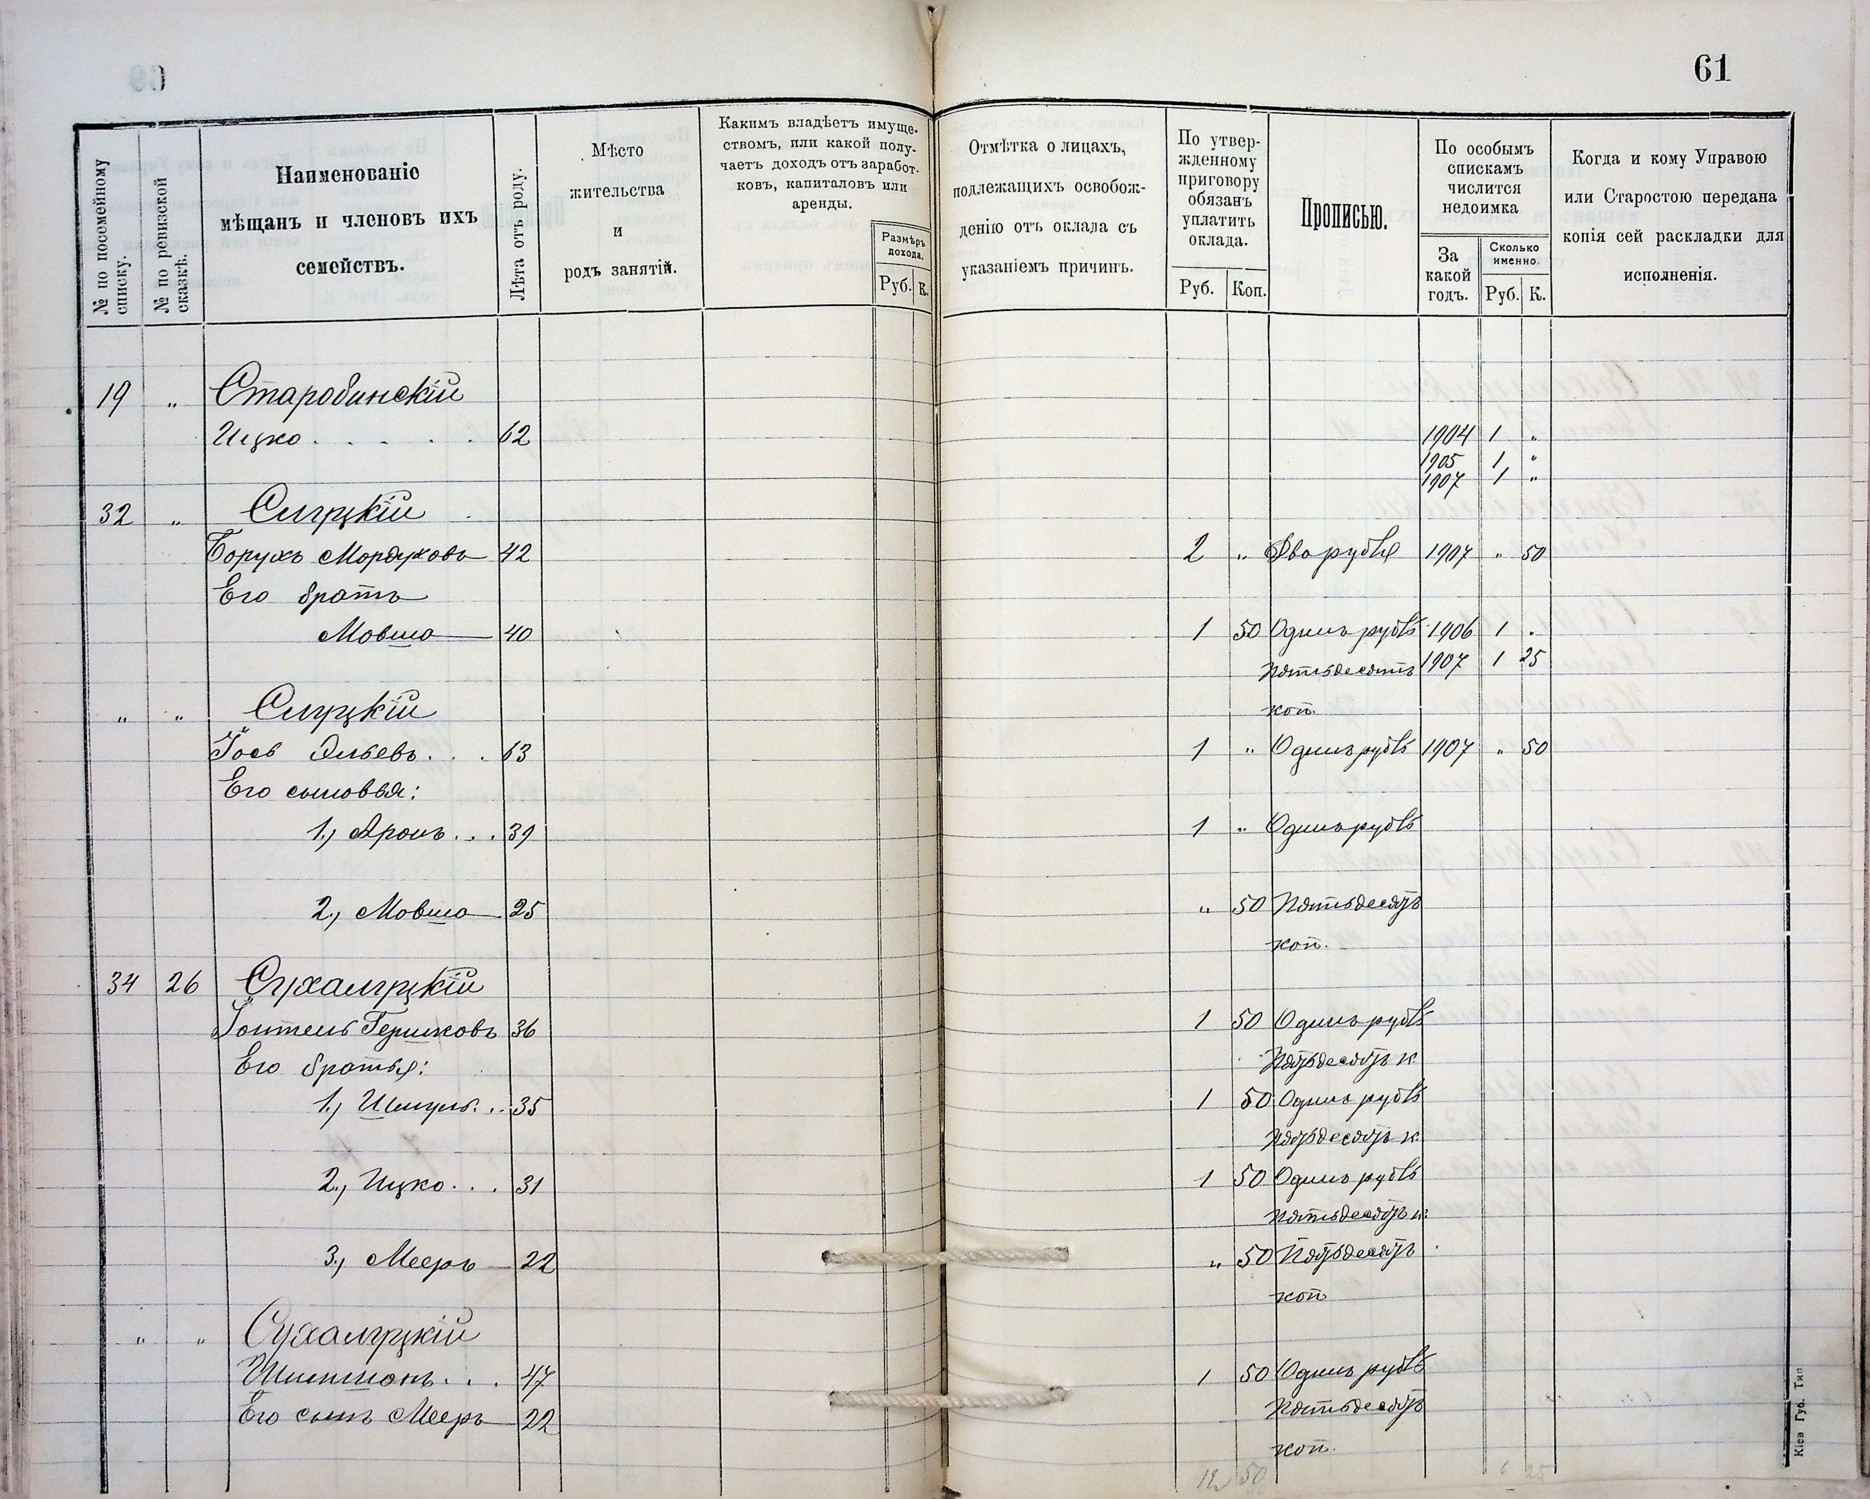 61
№ по посемейному списку.
№ по ревизской сказкѣ.
Наименованіе
мѣщанъ и членовъ ихъ
семействъ.
Лѣта отъ роду.
Мѣсто
жительства
и
родъ занятій.
Какимъ владѣетъ имуще-
ствомъ, или какой полу-
чаетъ доходъ отъ заработ-
ковъ, капиталовъ или
аренды.
Размѣръ
дохода.
Руб. К.
Отмѣтка о лицахъ,
подлежащихъ освобож-
денію отъ оклада съ
указаніемъ причинъ.
По утвер-
жденному
приговору
обязанъ
уплатить
оклада.
Руб. Коп.
Прописью.
По особымъ
спискамъ
числится
недоимка
За
какой
годъ.
Сколько
именно.
Руб. К.
Когда и кому Управою
или Старостою передана
копія сей раскладки для
исполненія.
19 " Старобинскій
Ицко . . . . . 62 1904 1 "
1905 1 "
1907 1 "
32 " Слуцкій
Борухъ Мордуховъ 42 2 " Два рубля 1907 " 50
Его братъ
Мовша 40 1 50 Одинъ рубль 1906 1 "
пятьдесятъ 1907 1 25
коп.
" " Слуцкій
Іось Эльевъ . . . 63 1 " Одинъ рубль 1907 " 50
Его сыновья:
1, Аронъ . . . 39 1 " Одинъ рубль
2, Мовша 25 " 50 Пятьдесятъ
коп.
34 26 Сухалуцкій
Іоитель Гершковъ 36 1 50 Одинъ рубль
Его братья: пятьдесятъ к.
1, Шмуль . . 35 1 50 Одинъ рубль
пятьдесятъ к.
2, Ицко . . . 31 1 50 Одинъ рубль
пятьдесятъ к.
3, Мееръ 22 " 50 Пятьдесятъ
коп
" " Сухалуцкій
Шимшонъ . . . 47 1 50 Одинъ рубль
Его сынъ Мееръ 22 пятьдесятъ
коп.
12 50 6 25
Кіев Губ. Тип